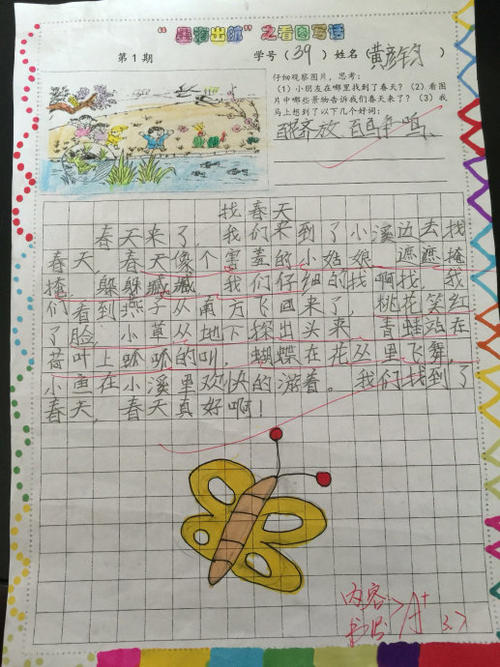 “蛋物出航”之看图写话
第1期 学号(39) 姓名(黄彦钧)
仔细观察图片,思考:
(1)小朋友在哪里找到了春天?(2)看图
片中哪些景物告诉我们春天来了?(3)我
马上想到了以下几个好词:
百花齐放 百鸟争鸣、
找春天
春天来了,我们来到了小溪边去找
春天,春天像个害羞的小姑娘,遮遮掩
掩,躲躲藏藏。我们仔细的找啊找,我
们看到燕子从南方飞回来了,桃花笑红
了脸,小草从地下探出头来,青蛙站在
荷叶上呱呱的叫,蝴蝶在花丛里飞舞,
小鱼在小溪里欢快的游着。我们找到了
春天,春天真好啊!
内容
书写 > A+
3.7